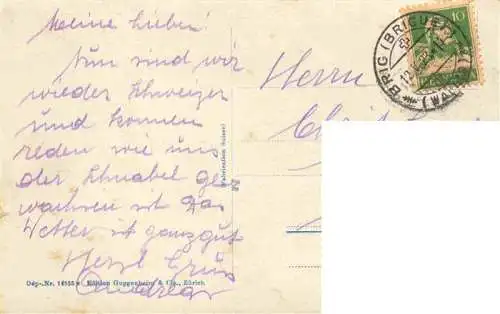 Meine Lieben!
Nun sind wir
wieder Schweizer
und können
reden wie uns
der Schnabel ge
wachsen ist das
Wetter ist ganz gut
Herzl Gruss
Dép.-Nr. Edition Guggenheim & Cie., Zürich
Herrn
10
BRIG (BRIGUE)